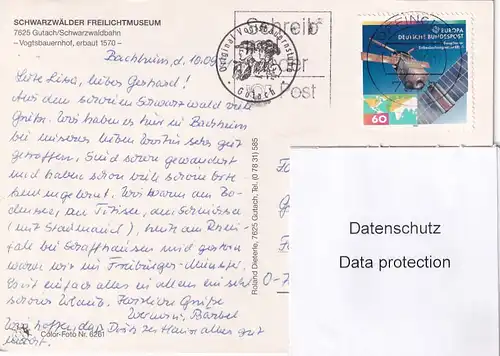 SCHWARZWÄLDER FREILICHTMUSEUM
7625 Gutach/Schwarzwaldbahn
– Vogtsbauernhof, erbaut 1570 –
Bachheim, d. 10.09.
Liebe Lissa, lieber Gerhard!
Aus dem schönen Schwarzwald viele
Grüße. Wir haben es hier in Bachheim
bei unserer lieben Wirtin sehr gut
getroffen. Sind schon gewandert
und haben schon viele schöne Orte
kennengelernt. Wir waren am Bo-
densee, am Titisee, am Schluchsee
(mit Staumauer), am Rhein-
falle bei Schaffhausen und gestern
waren wir im Freiburger Münster.
Es ist einfach alles in allem ein sehr
schöner Urlaub. Herzliche Grüße
Werner, Bärbel
Wir hoffen, daß zu Hause alles gut
Color-Foto Nr. 6261
Roland Dieterle, 7625 Gutach, Tel. (0 78 31) 585
Original Vogtsbauernhof
Gutach
Schreib
Post
EUROPA
DEUTSCHE BUNDESPOST
60
Datenschutz
Data protection